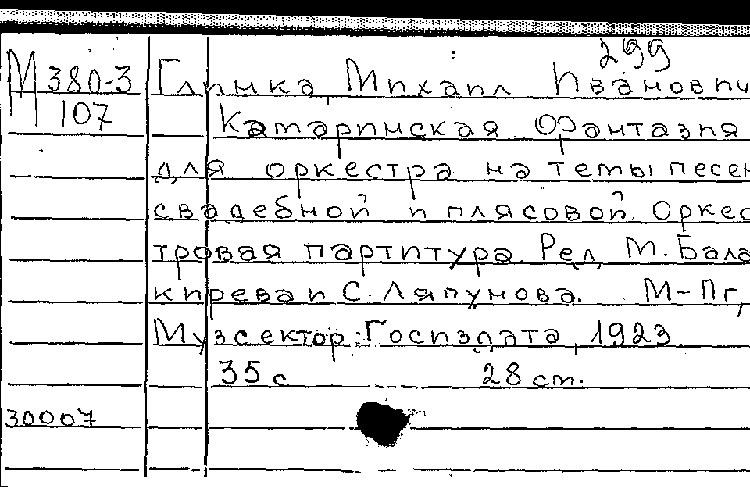 299
М380-3 Глинка, Михаил Иванович
107 Камаринская. Фантазия
для оркестра на темы песен
свадебной и плясовой. Оркес
тровая партитура. Ред. М. Бала
кирева и С. Ляпунова. М-Пг,
Музсектор Госиздата, 1923
35 с 28 cm.
30007